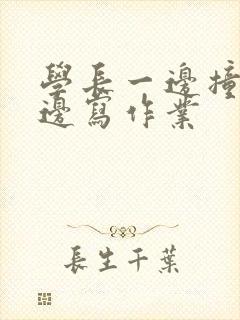 學長一邊撞
邊寫作業
長生千葉